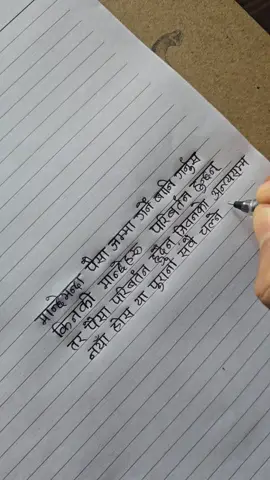 मान्छे भन्दा पैसा जम्मा गर्ने बानि गर्नुस
किनकी मान्छेहरु परिवर्तन हुन्छन्
तर पैसा परिवर्तन हुदैन जिवनको अन्त्यसम्म
नयाँ होस या पुरानो सबै चल्ने